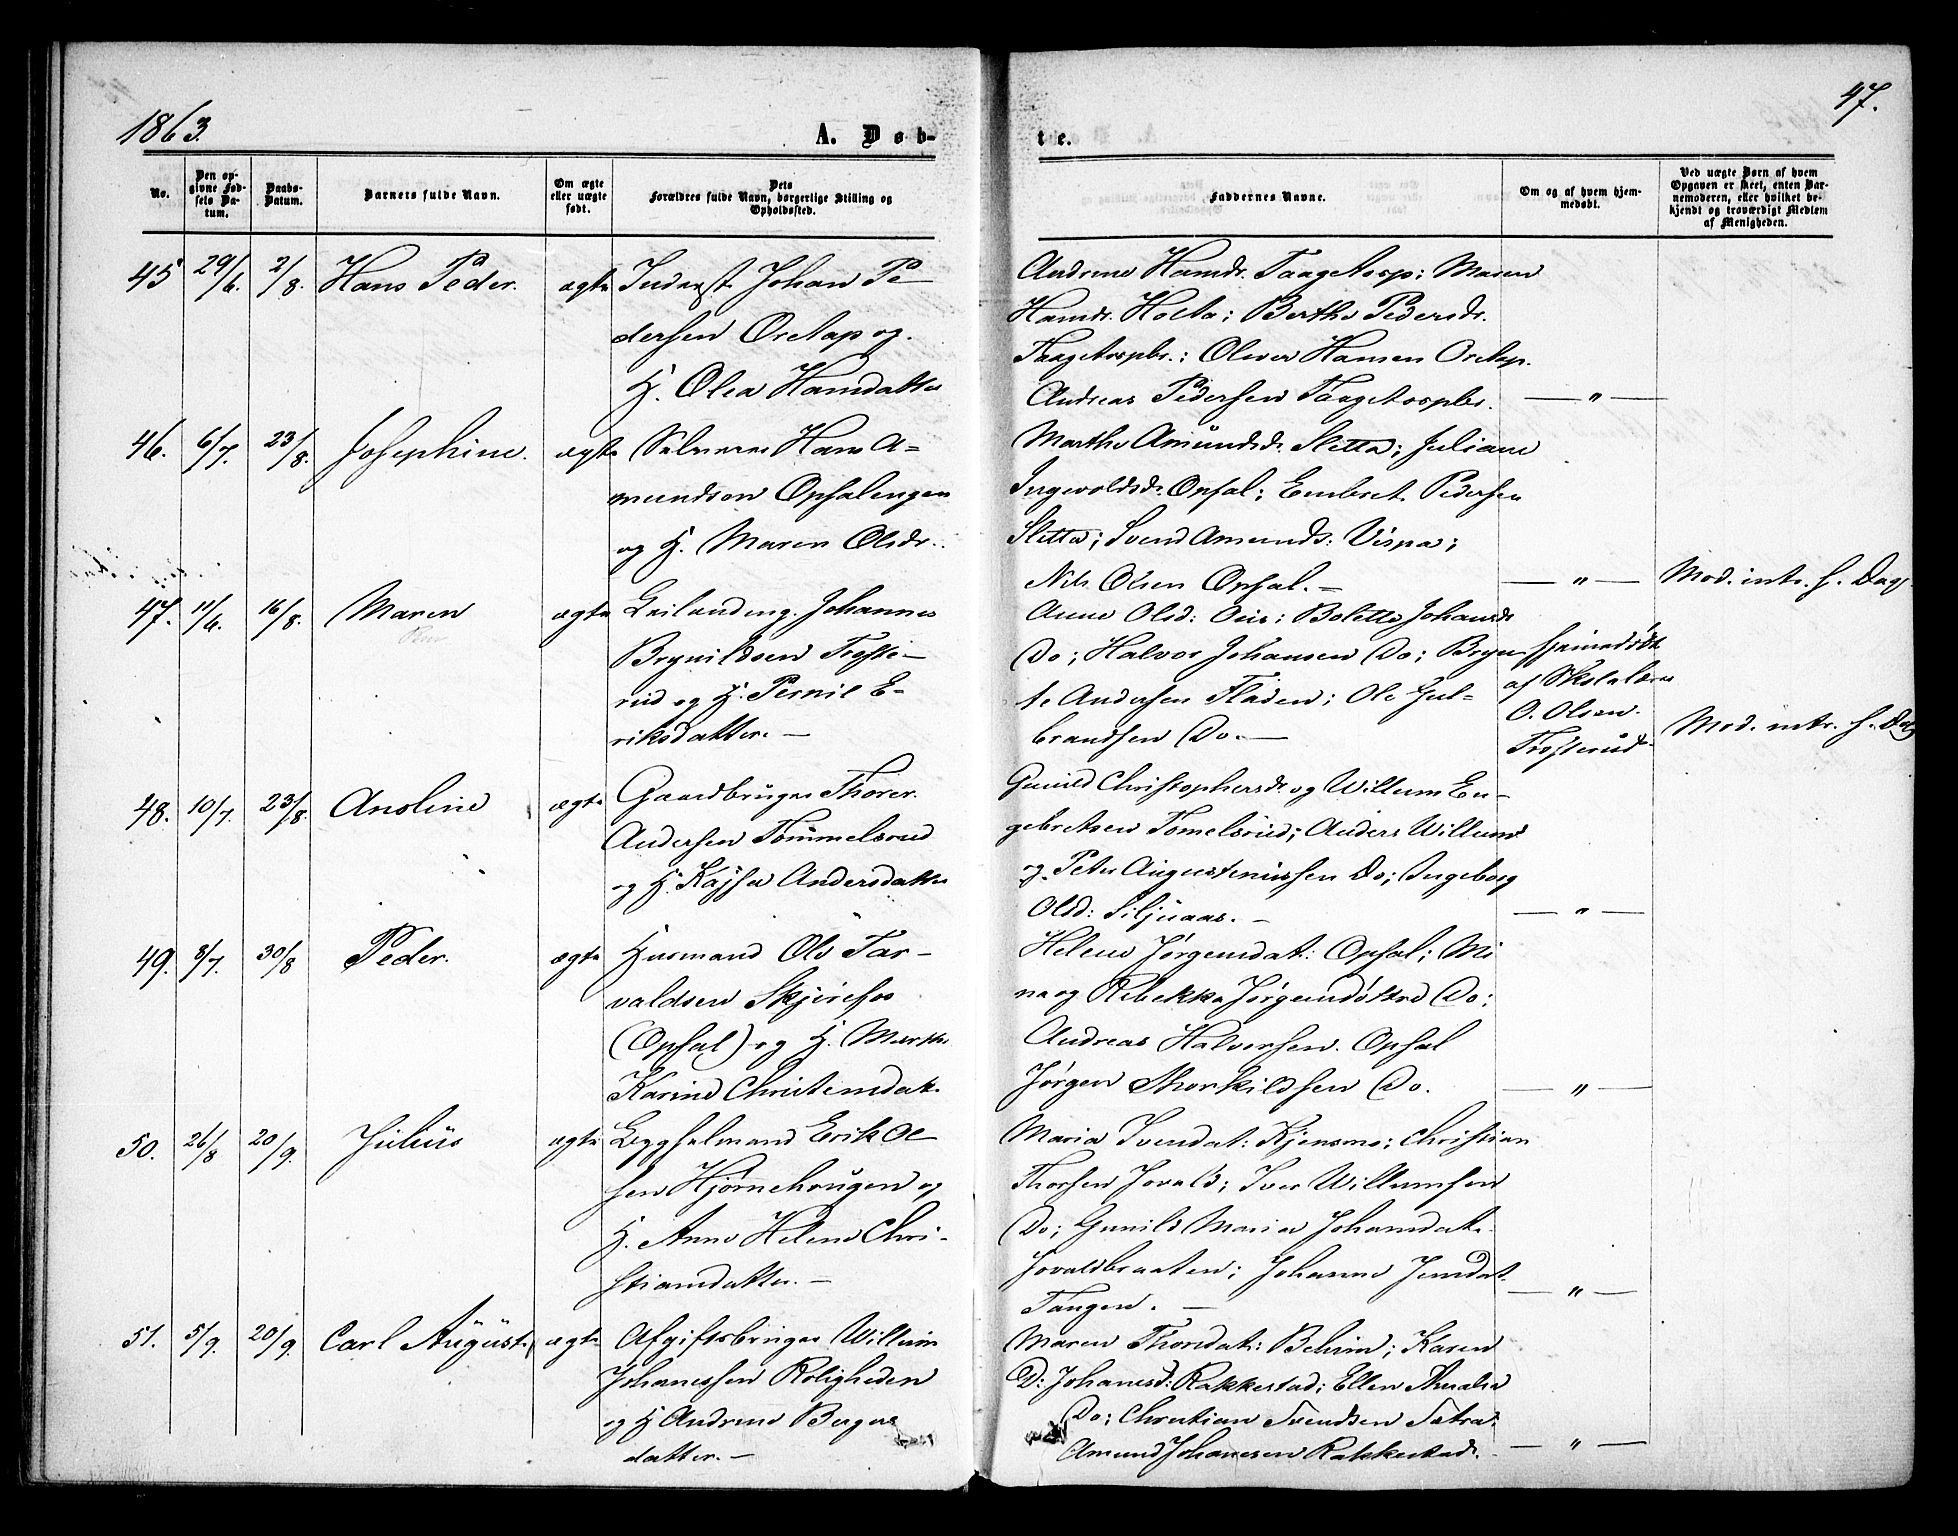 1863.
47.
A. Døb-
te.
No.
Den op-
givne Fød-
sels Da-
tum.
Daabs-
Datum.
Barnets fulde Navn.
Om ægte
eller uægte
født.
Dets
Forældres fulde Navn, borgerlige Stilling og
Opholdssted.
Faddernes Navne.
Om og af hvem hjem-
medøbt.
Ved uægte Børn af hvem
Opgaven er skeet, enten Bar-
nemoderen, eller hvilket be-
kjendt og troværdigt Medlem
af Menigheden.
45 29/6. 2/8. Hans Peder. ægte Inderst Johan Pe-
dersen Oretop og
H. Olea Hansdatter
Hansdr. Holta; Berthe Pedersdr.
Oliver Hansen Oretop.
Andreas Pedersen
— " —
46. 6/7. 23/8. Josephine. ægte Selveier Hans A-
mundsen Opsalengen
og H. Maren Olsdr.
Marthe Amundsd. Sletta; Juliane
Ingevoldsd. Opsal; Embret Pedersen
Sletta; Svend Amunds: Vispa;
Nils Olsen Opsal. —
— " — Mod. intr. s. Dag
47. 11/6. 16/8. Maren ægte Leilending Johannes
Brynildsen Troste-
rud og H. Pernil E-
riksdatter. —
Anne Olsd: Bolette Johansdr
Do; Halvor Johansen Do; Bryn-
Andersen Fladen; Ole Gul-
brandsen Do. —
hjemmedøbt
af Skolelærer
O. Olsen.
Trosterud
Mod. intr. s. Dag
48. 10/7. 23/8. Anoline ægte Gaardbruger Thorer
Andersen Tømmelsrud
og H. Kajsa Andersdatter
Gunild Christophersdr. og Willum En-
gebretsen Tømelsrud; Anders Willums
og Peter Augustinussen Do; Ingeborg
Olsd: Siljuaas. —
— " —
49. 8/7. 30/8 Peder. ægte Husmand Ole Tar-
valdsen Skjirefos
(Opsal) og H. Marthe
Karine Christensdat.
Helene Jørgensdat: Opsal; Mi
na og Rebekka Jørgensdøttre Do;
Andreas Halversen. Opsal
Jørgen Thorkildsen Do.
— " —
50. 26/8 20/9. Julius ægte Løgselmand Erik Ol-
sen Hjørnehougen og
H. Anne Helene Chri-
stiansdatter. —
Maria Svensdat: Kjensmo; Christian
Thorsen Jovald; Iver Willumsen
Do; Gunild Maria Johansdat.
Jovaldbraaten; Johanne Jensdat.
Tangen. —
— " —
51. 5/9. 20/9. Carl August. ægte Afgiftsbruger Willum
Johanessen Roligheden
og H Andrine Birgers
datter. —
Maren Thorsdat: Karen
D: Johanesd: Rakkestad; Ellen Amalia
Do; Christian Svendsen Sætra
Amund Johanesen Rakkestad.
— " —